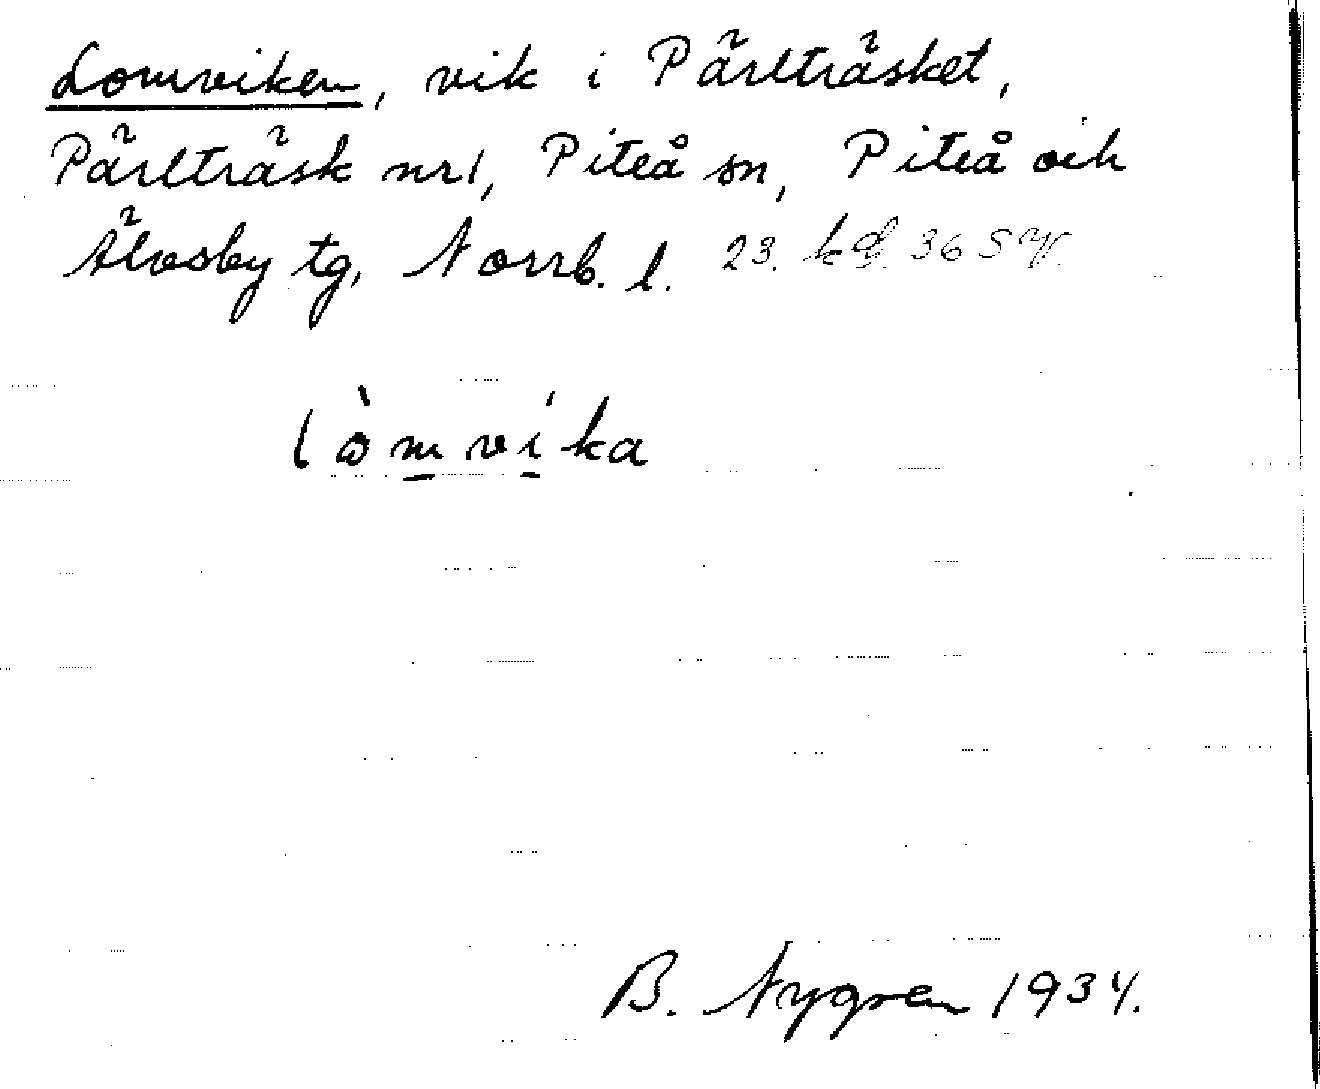 Lomviken, vik i Pärlträsket,
Pärlträsk nr 1, Piteå sn, Piteå och
Älvsby tg, Norrb. l. 23. kg. 36 SV.
lòmvika
B. Nygren 1934.